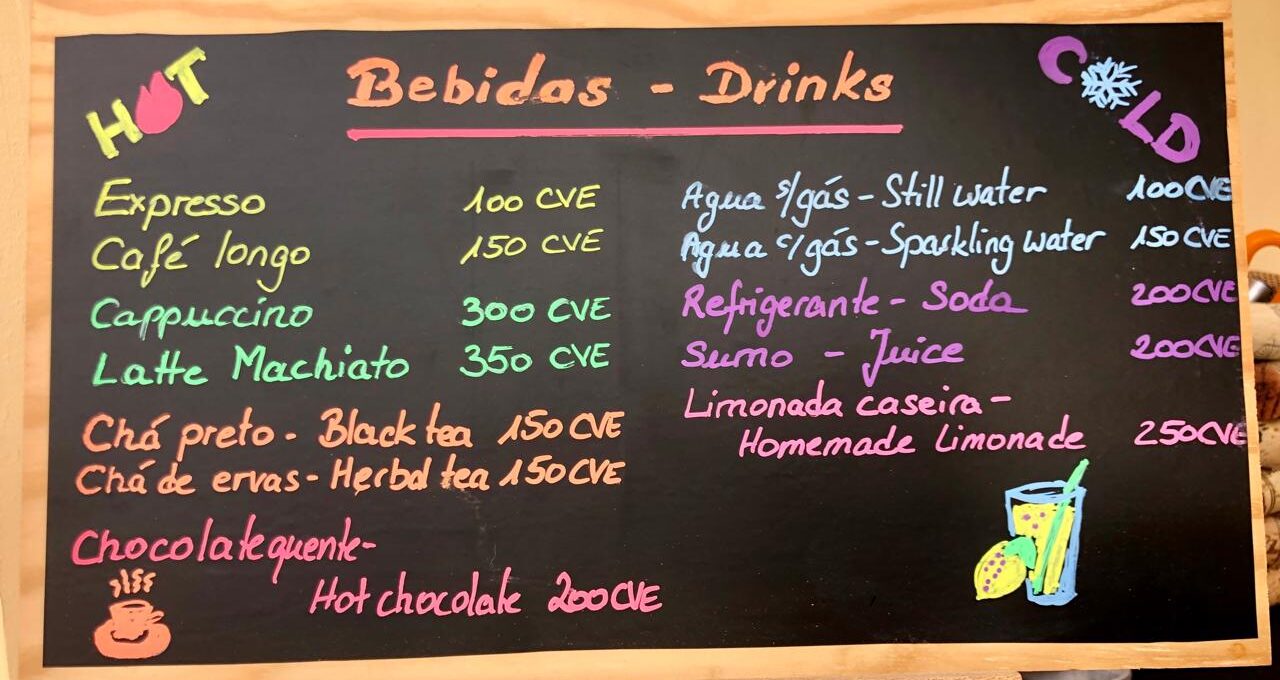 HOT
Bebidas - Drinks
COLD
Expresso 100 CVE
Café longo 150 CVE
Cappuccino 300 CVE
Latte Machiato 350 CVE
Chá preto - Black tea 150 CVE
Chá de ervas - Herbal tea 150 CVE
Chocolate quente -
Hot chocolate 200 CVE
Agua s/gás - Still water 100 CVE
Agua c/gás - Sparkling water 150 CVE
Refrigerante - Soda 200 CVE
Sumo - Juice 200 CVE
Limonada caseira -
Homemade Limonade 250 CVE